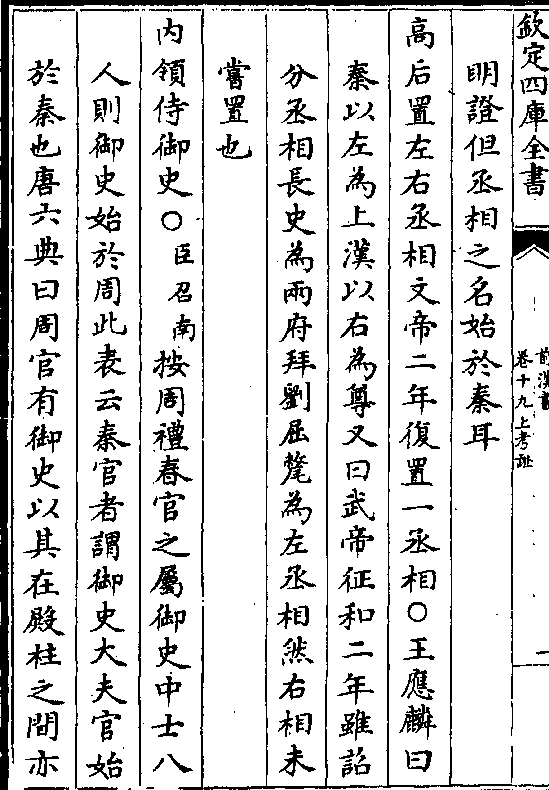 欽定四庫全書
前漢書
卷十九上考證
一
明證但丞相之名始於秦耳
高后置左右丞相文帝二年復置一丞相○王應麟曰
秦以左為上漢以右為尊又曰武帝征和二年雖詔
分丞相長史為兩府拜劉屈氂為左丞相然右相未
嘗置也
内領侍御史○臣召南按周禮春官之屬御史中士八
人則御史始於周此表云秦官者謂御史大夫官始
於秦也唐六典曰周官有御史以其在殿柱之間亦